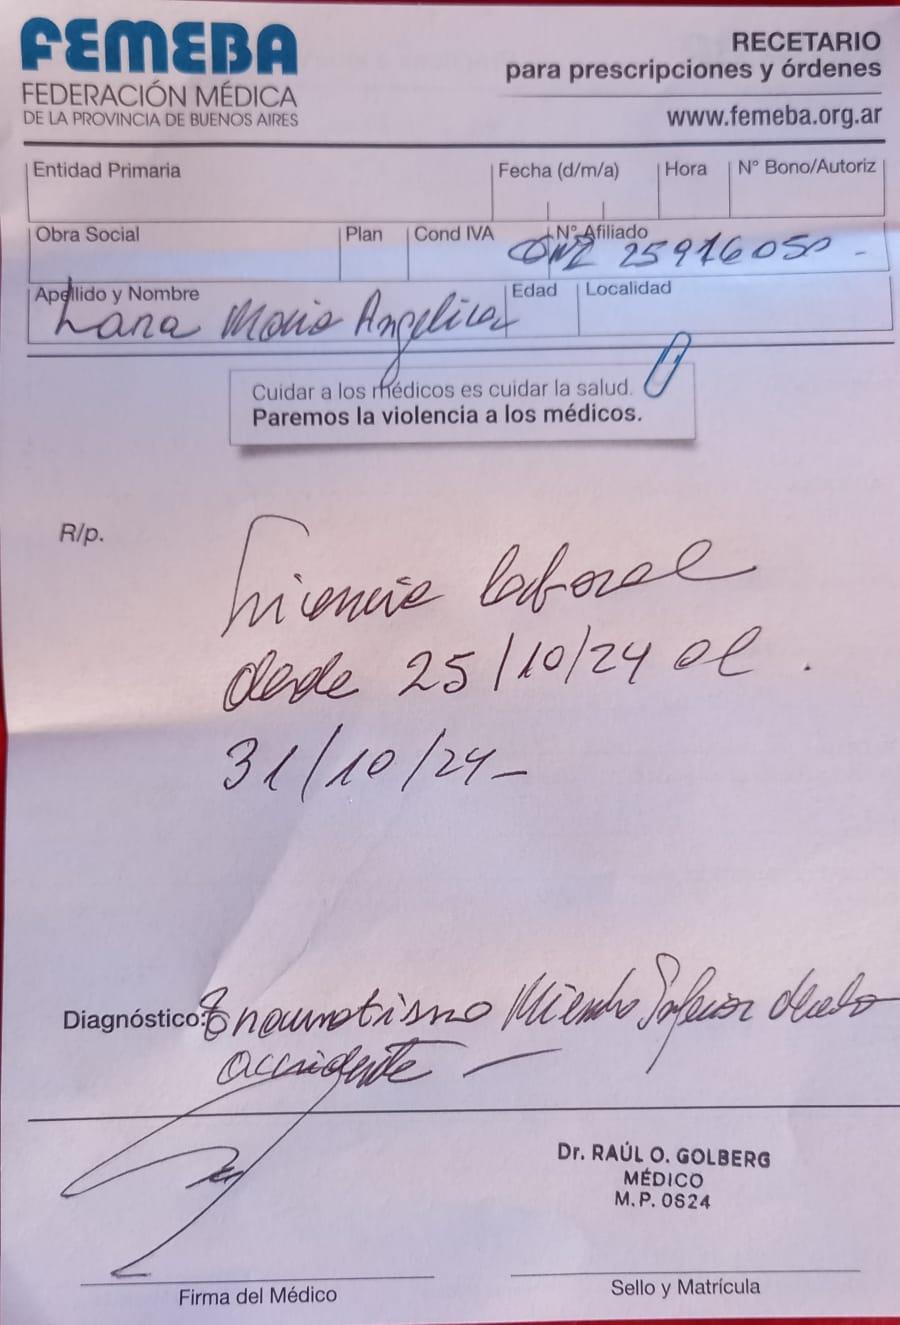 FEMEBA
FEDERACIÓN MÉDICA
DE LA PROVINCIA DE BUENOS AIRES
RECETARIO
para prescripciones y órdenes
www.femeba.org.ar
Entidad Primaria
Fecha (d/m/a)
Hora
N° Bono/Autoriz
Obra Social
Plan
Cond IVA
N° Afiliado
25976050
Apellido y Nombre
Maria Angelica
Edad
Localidad
Cuidar a los médicos es cuidar la salud.
Paremos la violencia a los médicos.
R/p.
Licencia laboral
desde 25/10/24 al
31/10/24
Diagnóstico: Miembro Inferior
accidente
Dr. RAÚL O. GOLBERG
MÉDICO
M.P. 0624
Firma del Médico
Sello y Matrícula